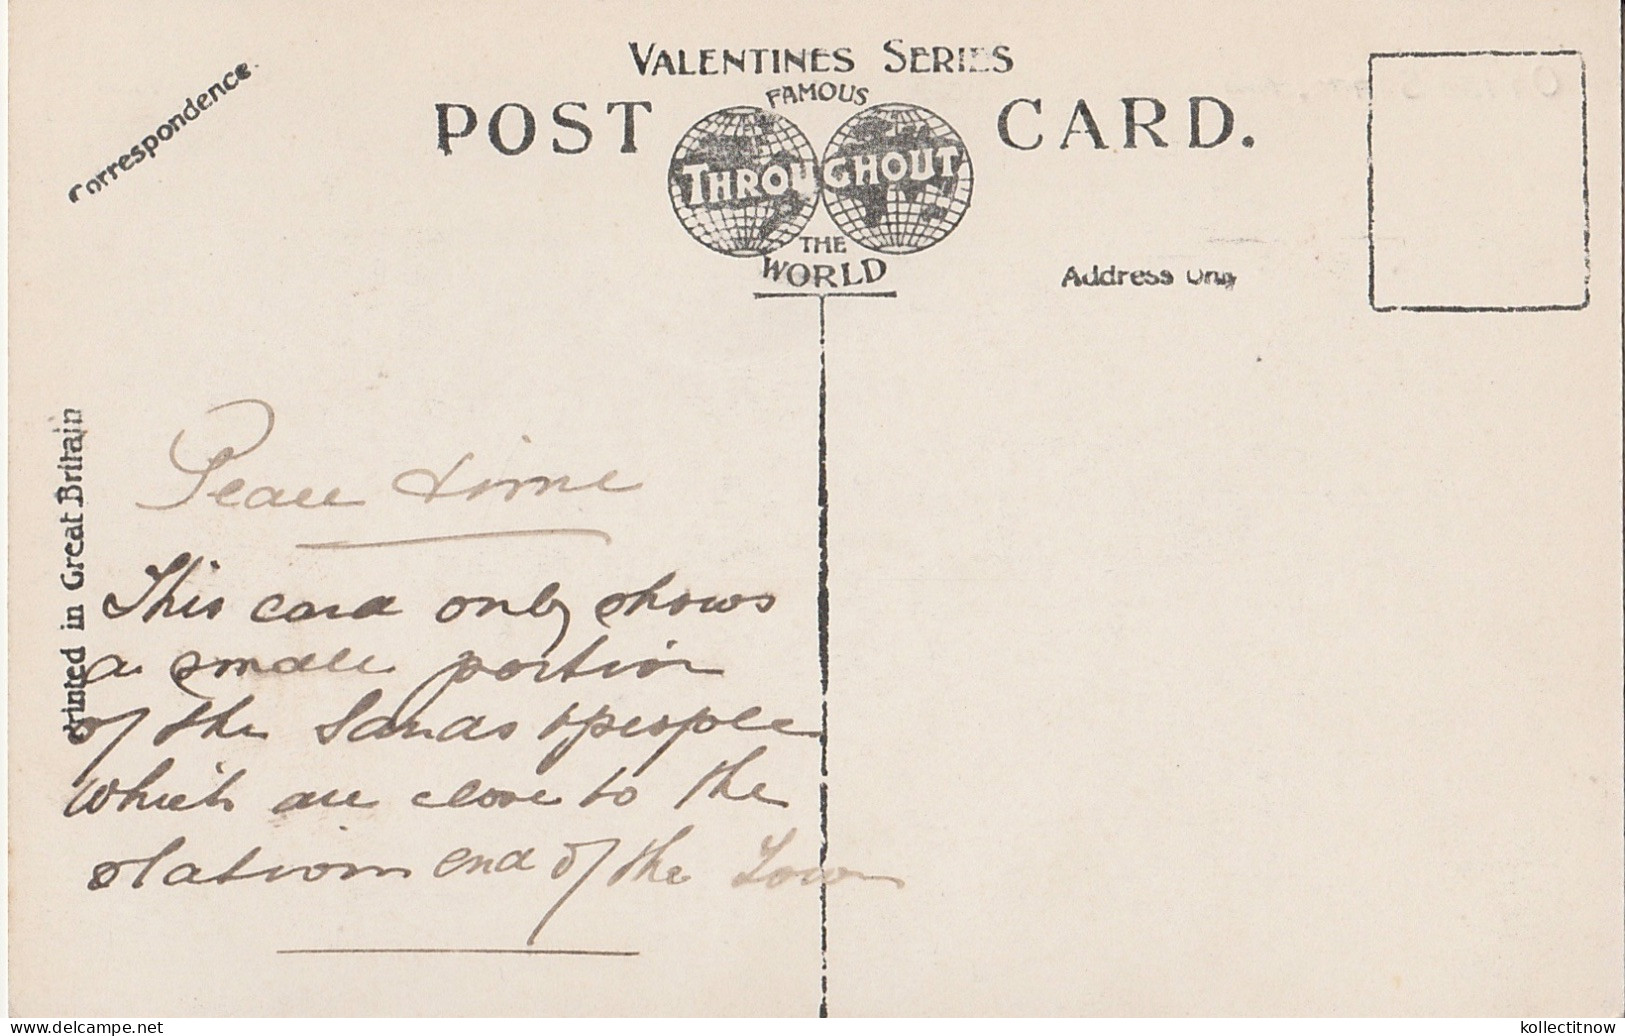 VALENTINES SERIES
FAMOUS
POST CARD.
THROUGHOUT
THE
WORLD
Correspondence.
Address Only
Printed in Great Britain
Peace time
This card only shows
a small portion
of the Sands & people
which are close to the
station end of the Town
kollectitnow